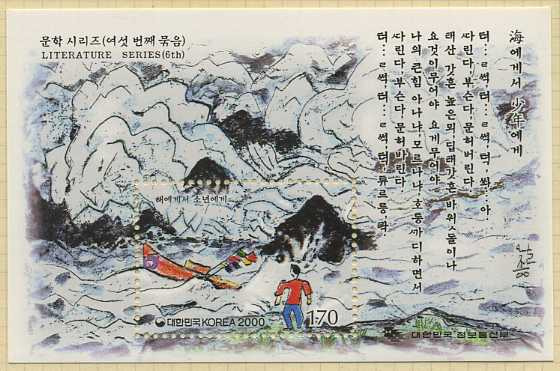 문학 시리즈(여섯 번째 묶음)
LITERATURE SERIES(6th)
海에게서 少年에게
텨…ㄹ썩, 텨…ㄹ썩, 텩, 쏴…아.
따린다, 부슨다, 문허 버린다.
태산 갓흔 높은 뫼, 딥태 갓흔 바위ㅅ돌이나,
요것이 무어야, 요게 무어야.
나의 큰 힘 아나냐, 모르나냐, 호통까디 하면서,
따린다, 부슨다, 문허 버린다.
텨…ㄹ썩, 텨…ㄹ썩, 텩, 튜르릉, 콱.
해에게서 소년에게
대한민국 KOREA 2000
170
대한민국 정보통신부